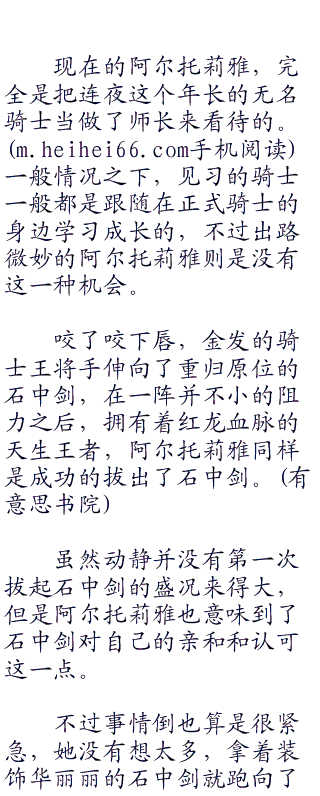 现在的阿尔托莉雅，完
全是把连夜这个年长的无名
骑士当做了师长来看待的。
(m.heihei66.com手机阅读)
一般情况之下，见习的骑士
一般都是跟随在正式骑士的
身边学习成长的，不过出路
微妙的阿尔托莉雅则是没有
这一种机会。
咬了咬下唇，金发的骑
士王将手伸向了重归原位的
石中剑，在一阵并不小的阻
力之后，拥有着红龙血脉的
天生王者，阿尔托莉雅同样
是成功的拔出了石中剑。(有
意思书院)
虽然动静并没有第一次
拔起石中剑的盛况来得大，
但是阿尔托莉雅也意味到了
石中剑对自己的亲和和认可
这一点。
不过事情倒也算是很紧
急，她没有想太多，拿着装
饰华丽丽的石中剑就跑向了